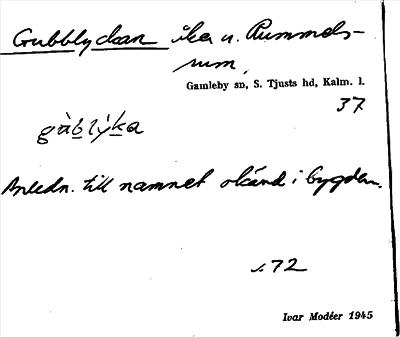 Gubblyckan åker u. Rummels-
rum,
Gamleby sn, S. Tjusts hd, Kalm. l.
37
gùblỳka
Anledn. till namnet okänd i bygden.
s. 72
Ivar Modéer 1945